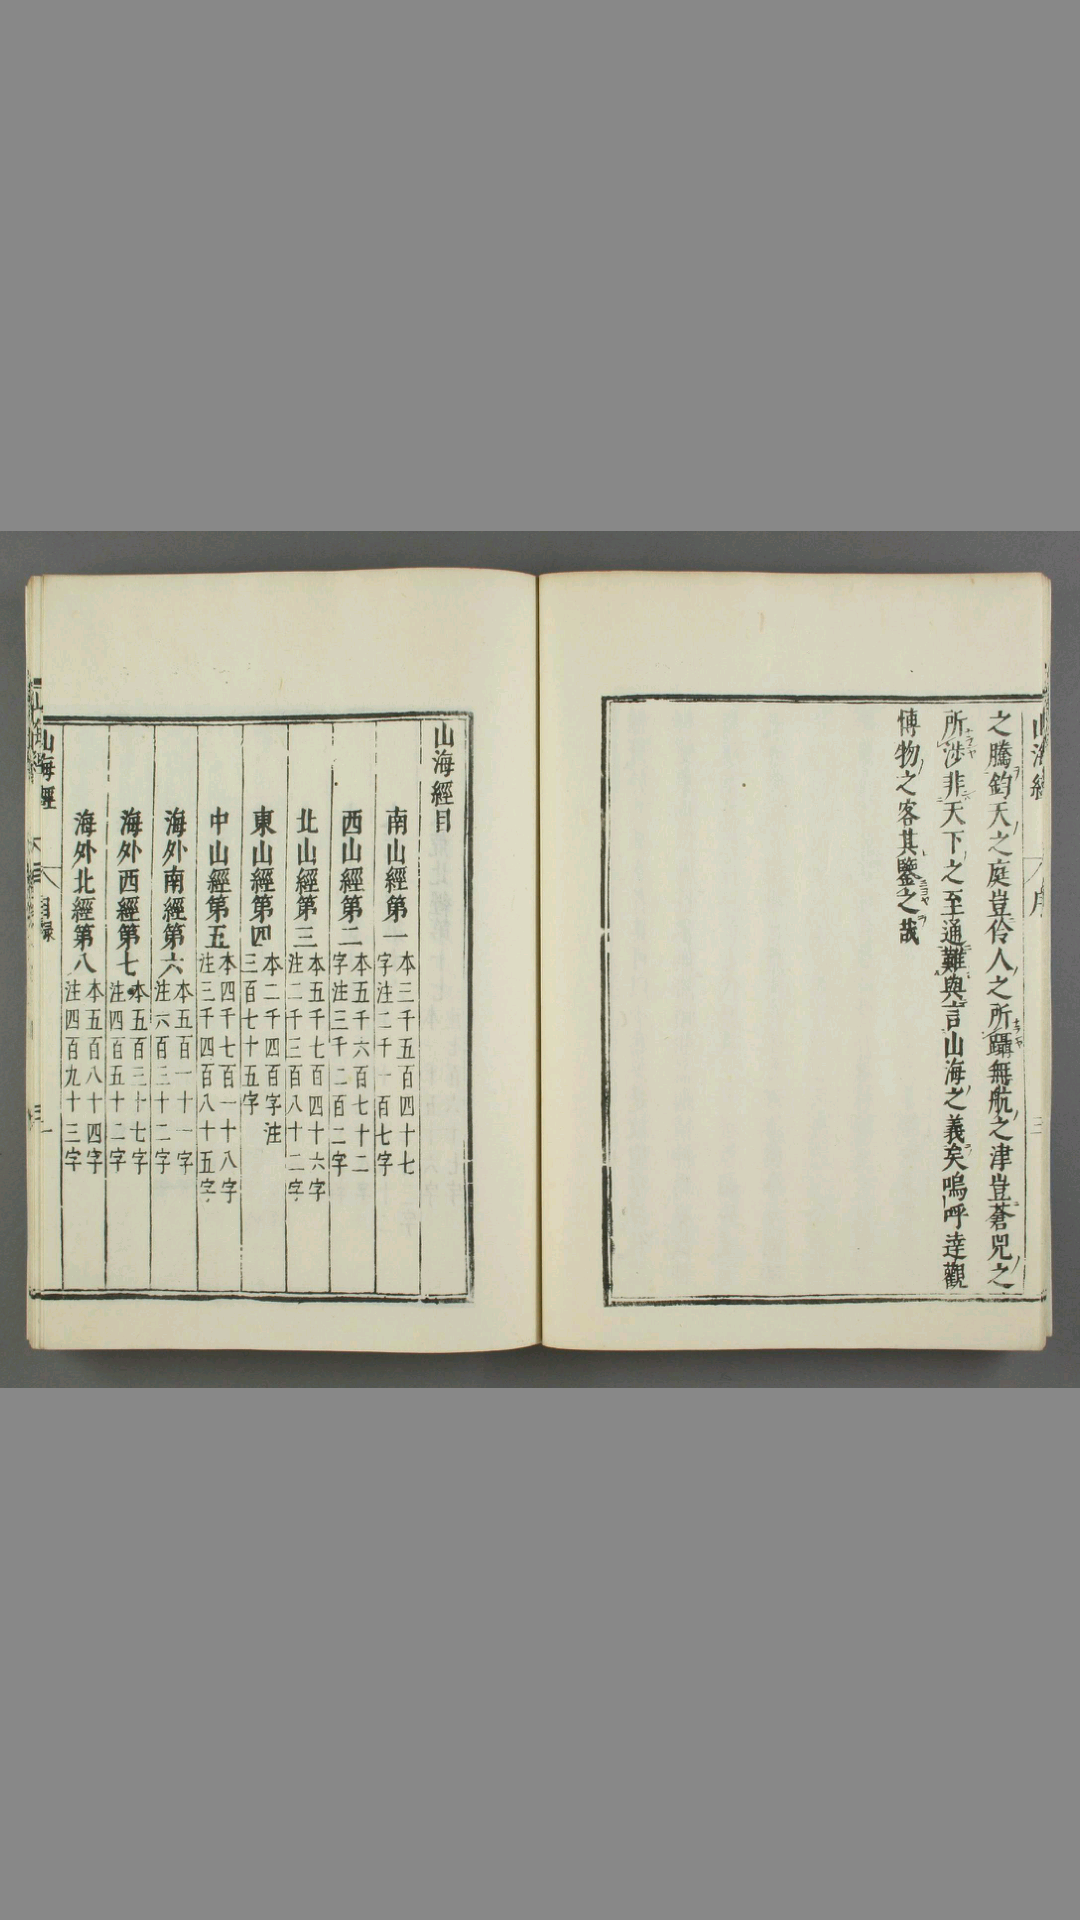 之騰鈞天之庭豈伶人之所躡無航之津豈蒼兕之
所涉非天下之至通難與言山海之義矣嗚呼達觀
博物之客其鑒之哉
山海經目
南山經第一
本三千五百四十七
字注二千一百七字
西山經第二
本五千六百七十二
字注三千二百二字
北山經第三
本五千七百四十六字
注二千三百八十二字
東山經第四
本二千四百字注
三百七十五字
中山經第五
本四千七百一十八字
注三千四百八十五字
海外南經第六
本五百一十一字
注六百二十二字
海外西經第七
本五百三十七字
注四百五十二字
海外北經第八
本五百八十四字
注四百九十三字
山海經
目録